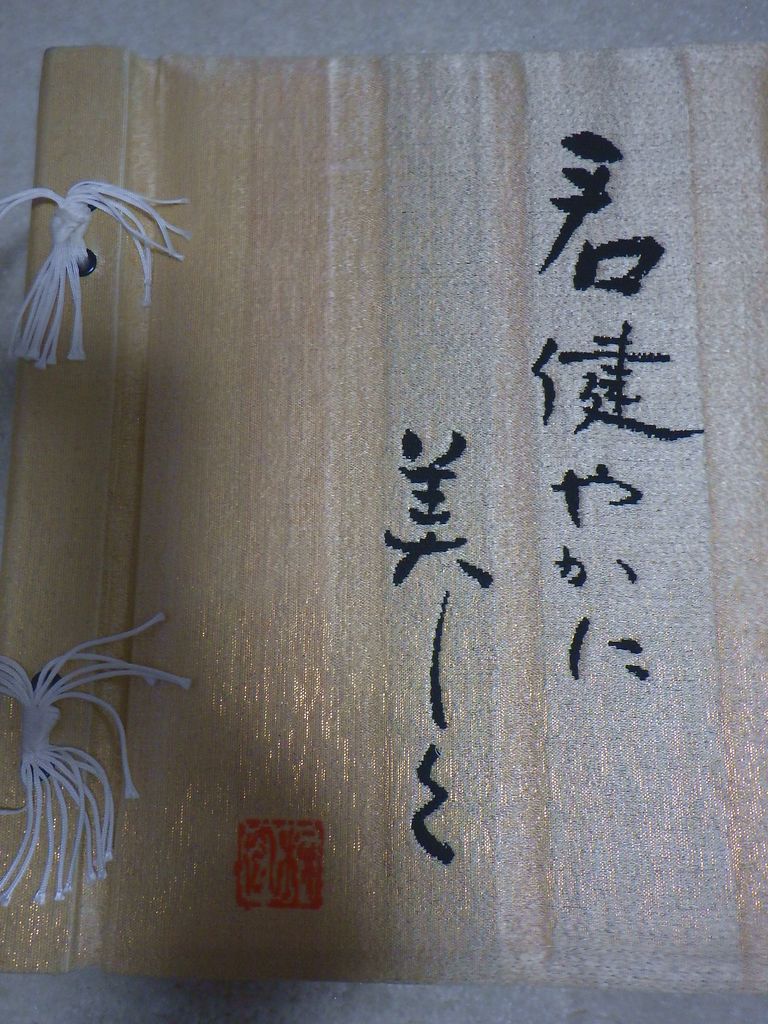 君健やかに
美しく